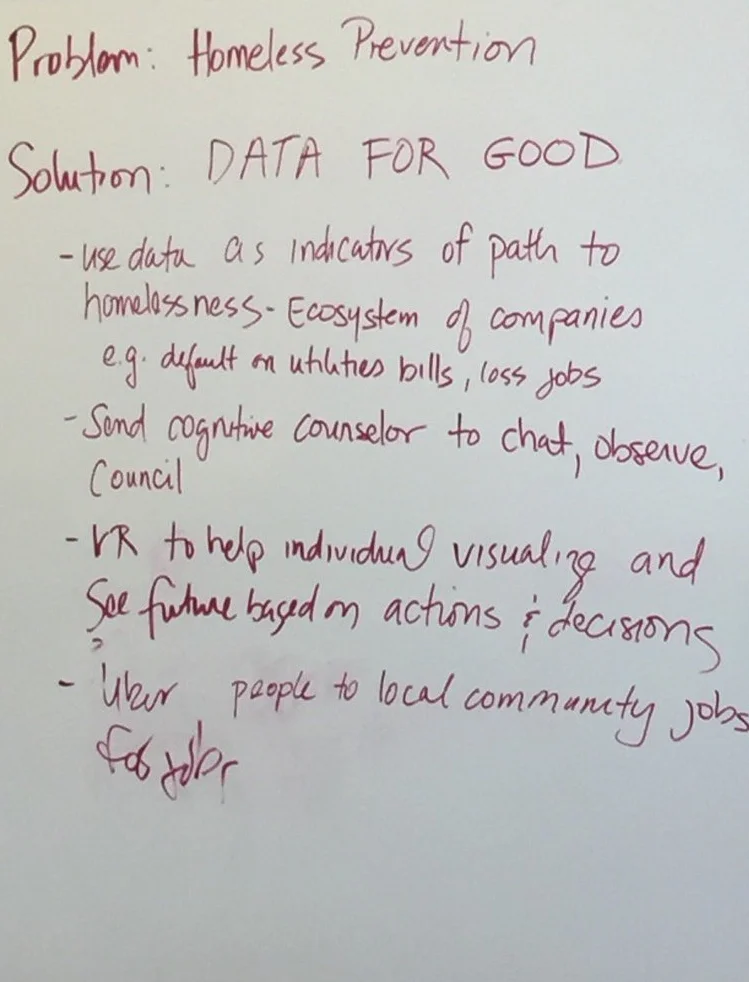 Problem: Homeless Prevention
Solution: DATA FOR GOOD
- use data as indicators of path to
homelessness - Ecosystem of companies
e.g. default on utilities bills, loss jobs
- Send cognitive counselor to chat, observe,
Council
- VR to help individual visualize and
See future based on actions & decisions
- Uber people to local community jobs
for jobs